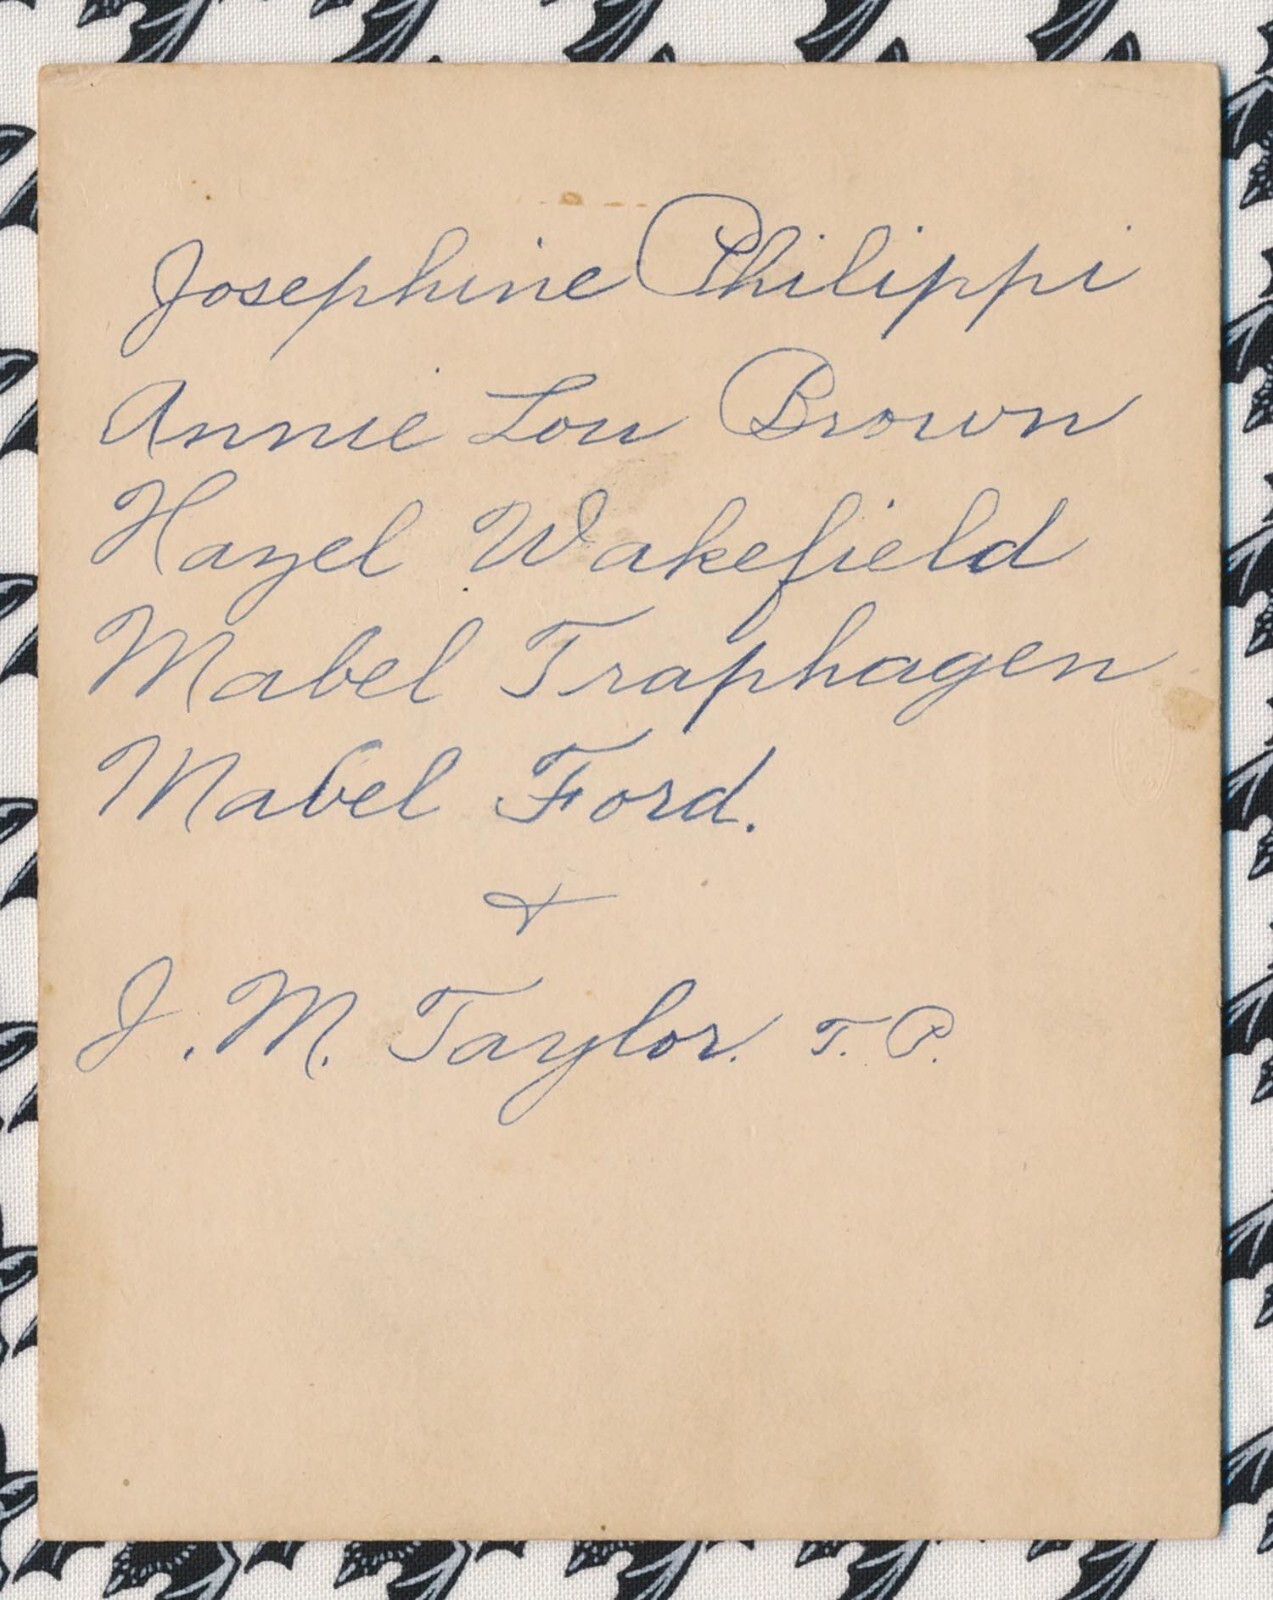 Josephine Philippi
Annie Lou Brown
Hazel Wakefield
Mabel Traphagen
Mabel Ford.
&
J. M. Taylor. T. P.